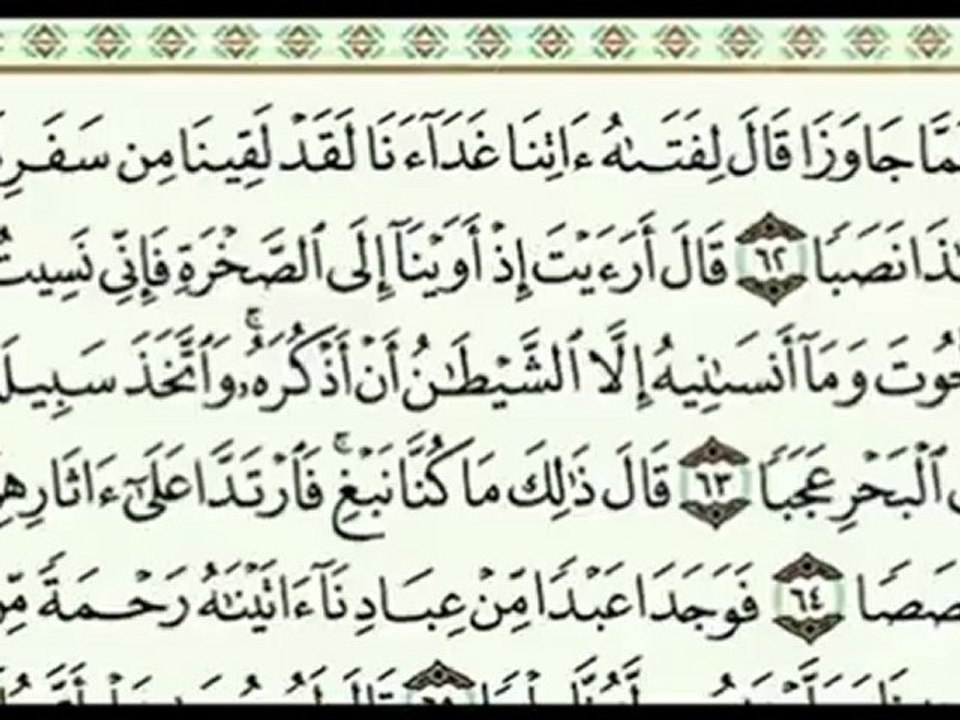 مَّا جَاوَزَا قَالَ لِفَتَىٰهُ ءَاتِنَا غَدَآءَنَا لَقَدْ لَقِينَا مِن سَفَرِ
ذَا نَصَبًا ٦٢ قَالَ أَرَءَيْتَ إِذْ أَوَيْنَآ إِلَى ٱلصَّخْرَةِ فَإِنِّى نَسِيتُ
حُوتَ وَمَآ أَنسَىٰنِيهُ إِلَّا ٱلشَّيْطَـٰنُ أَنْ أَذْكُرَهُۥ ۚ وَٱتَّخَذَ سَبِيلَ
ٱلْبَحْرِ عَجَبًا ٦٣ قَالَ ذَٰلِكَ مَا كُنَّا نَبْغِ ۚ فَٱرْتَدَّا عَلَىٰٓ ءَاثَارِهِ
صَصًا ٦٤ فَوَجَدَا عَبْدًا مِّنْ عِبَادِنَآ ءَاتَيْنَـٰهُ رَحْمَةً مِّ